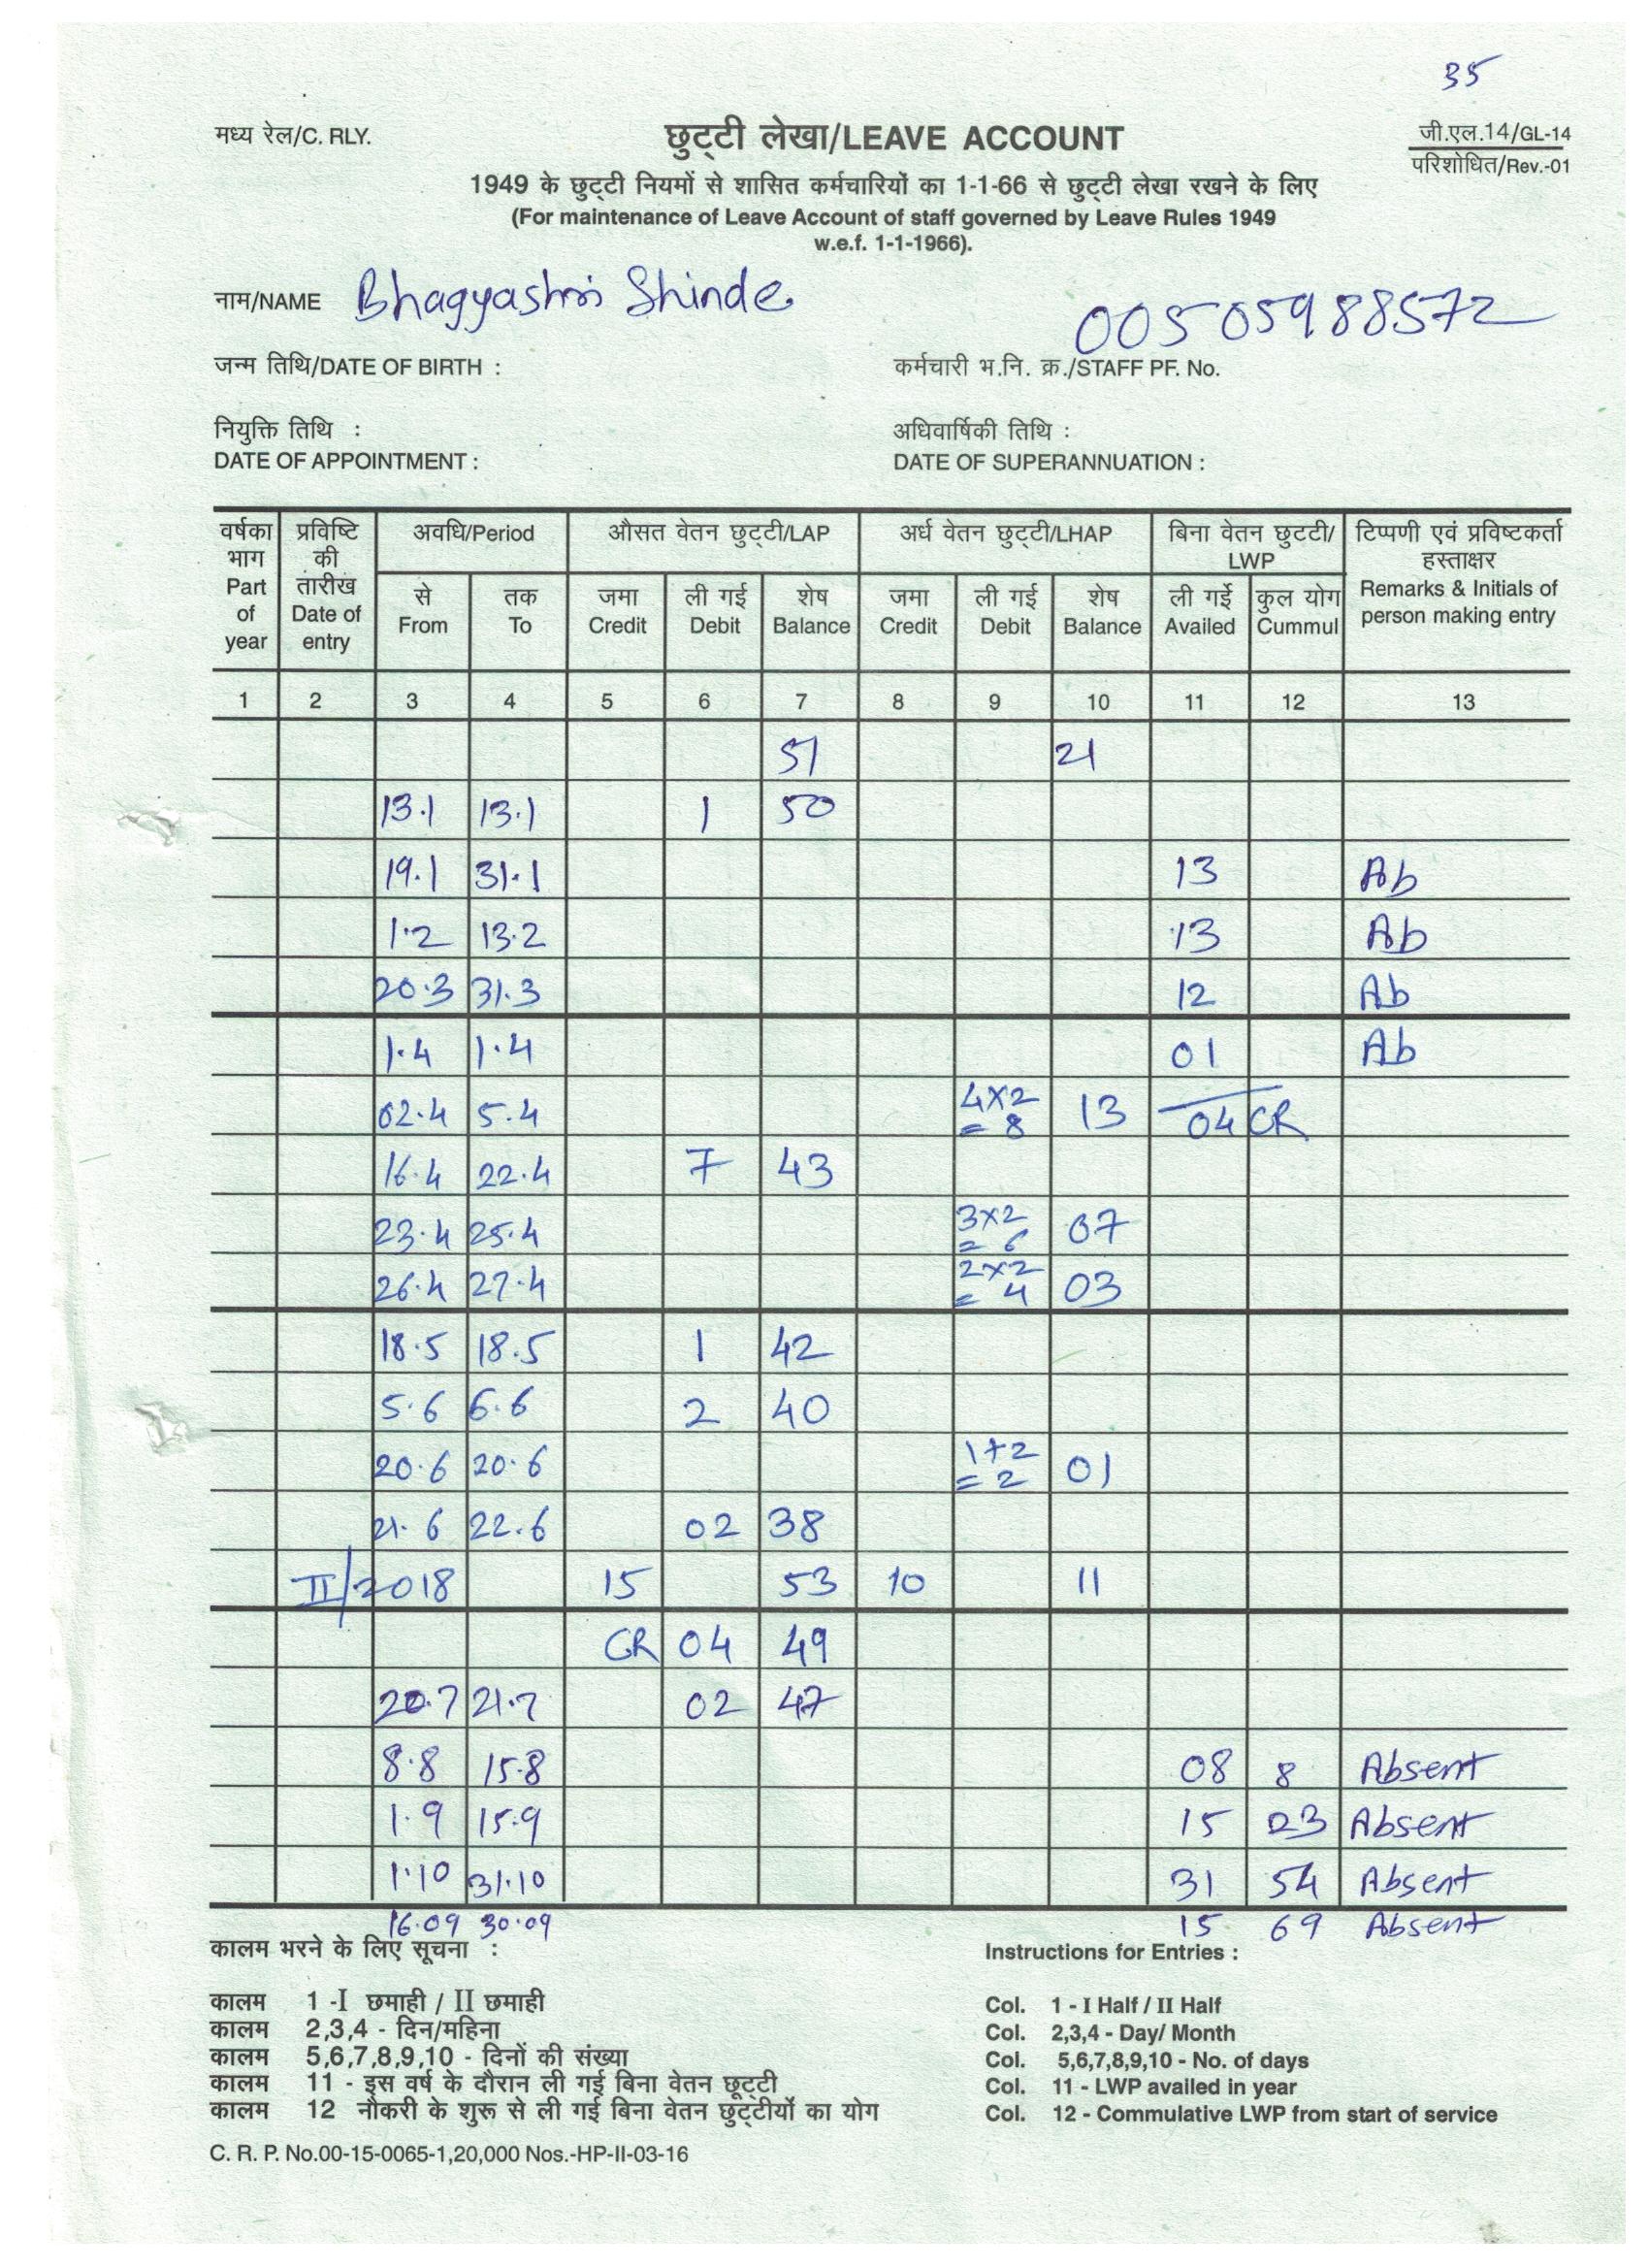 35
मध्य रेल/C. RLY.
छुट्टी लेखा/LEAVE ACCOUNT
जी.एल.14/GL-14
परिशोधित/Rev.-01
1949 के छुट्टी नियमों से शासित कर्मचारियों का 1-1-66 से छुट्टी लेखा रखने के लिए
(For maintenance of Leave Account of staff governed by Leave Rules 1949
w.e.f. 1-1-1966).
नाम/NAME Bhagyashri Shinde
00505988572
जन्म तिथि/DATE OF BIRTH :
कर्मचारी भ.नि. क्र./STAFF PF. No.
नियुक्ति तिथि :
DATE OF APPOINTMENT :
अधिवार्षिकी तिथि :
DATE OF SUPERANNUATION :
वर्षका भाग Part of year
प्रविष्टि की तारीख Date of entry
अवधि/Period
औसत वेतन छुट्टी/LAP
अर्ध वेतन छुट्टी/LHAP
बिना वेतन छुटटी/ LWP
टिप्पणी एवं प्रविष्टकर्ता हस्ताक्षर Remarks & Initials of person making entry
से From
तक To
जमा Credit
ली गई Debit
शेष Balance
जमा Credit
ली गई Debit
शेष Balance
ली गई Availed
कुल योग Cummul
1 2 3 4 5 6 7 8 9 10 11 12 13
51 21
13.1 13.1 1 50
19.1 31.1 13 Ab
1.2 13.2 13 Ab
20.3 31.3 12 Ab
1.4 1.4 01 Ab
02.4 5.4 4X2 = 8 13 04 CR
16.4 22.4 7 43
23.4 25.4 3x2 = 6 07
26.4 27.4 2x2 = 4 03
18.5 18.5 1 42
5.6 6.6 2 40
20.6 20.6 1+2 = 2 01
21.6 22.6 02 38
II/2018 15 53 10 11
CR 04 49
20.7 21.7 02 47
8.8 15.8 08 8 Absent
1.9 15.9 15 23 Absent
1.10 31.10 31 54 Absent
16.09 30.09 15 69 Absent
कालम भरने के लिए सूचना :
कालम 1 -I छमाही / II छमाही
कालम 2,3,4 - दिन/महिना
कालम 5,6,7,8,9,10 - दिनों की संख्या
कालम 11 - इस वर्ष के दौरान ली गई बिना वेतन छूट्टी
कालम 12 नौकरी के शुरू से ली गई बिना वेतन छुट्टीयों का योग
Instructions for Entries :
Col. 1 - I Half / II Half
Col. 2,3,4 - Day/ Month
Col. 5,6,7,8,9,10 - No. of days
Col. 11 - LWP availed in year
Col. 12 - Commulative LWP from start of service
C. R. P. No.00-15-0065-1,20,000 Nos.-HP-II-03-16